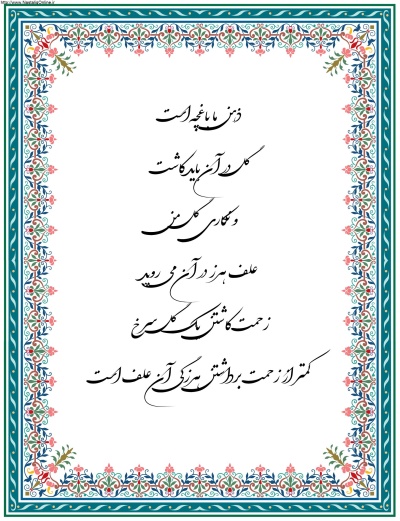 http://www.NastaliqOnline.ir
ذهن ما باغچه است
گل در آن باید کاشت
و نکاری گل من
علف هرز در آن می روید
زحمت کاشتن یک گل سرخ
کمتر از زحمت برداشتن هرزگی آن علف است